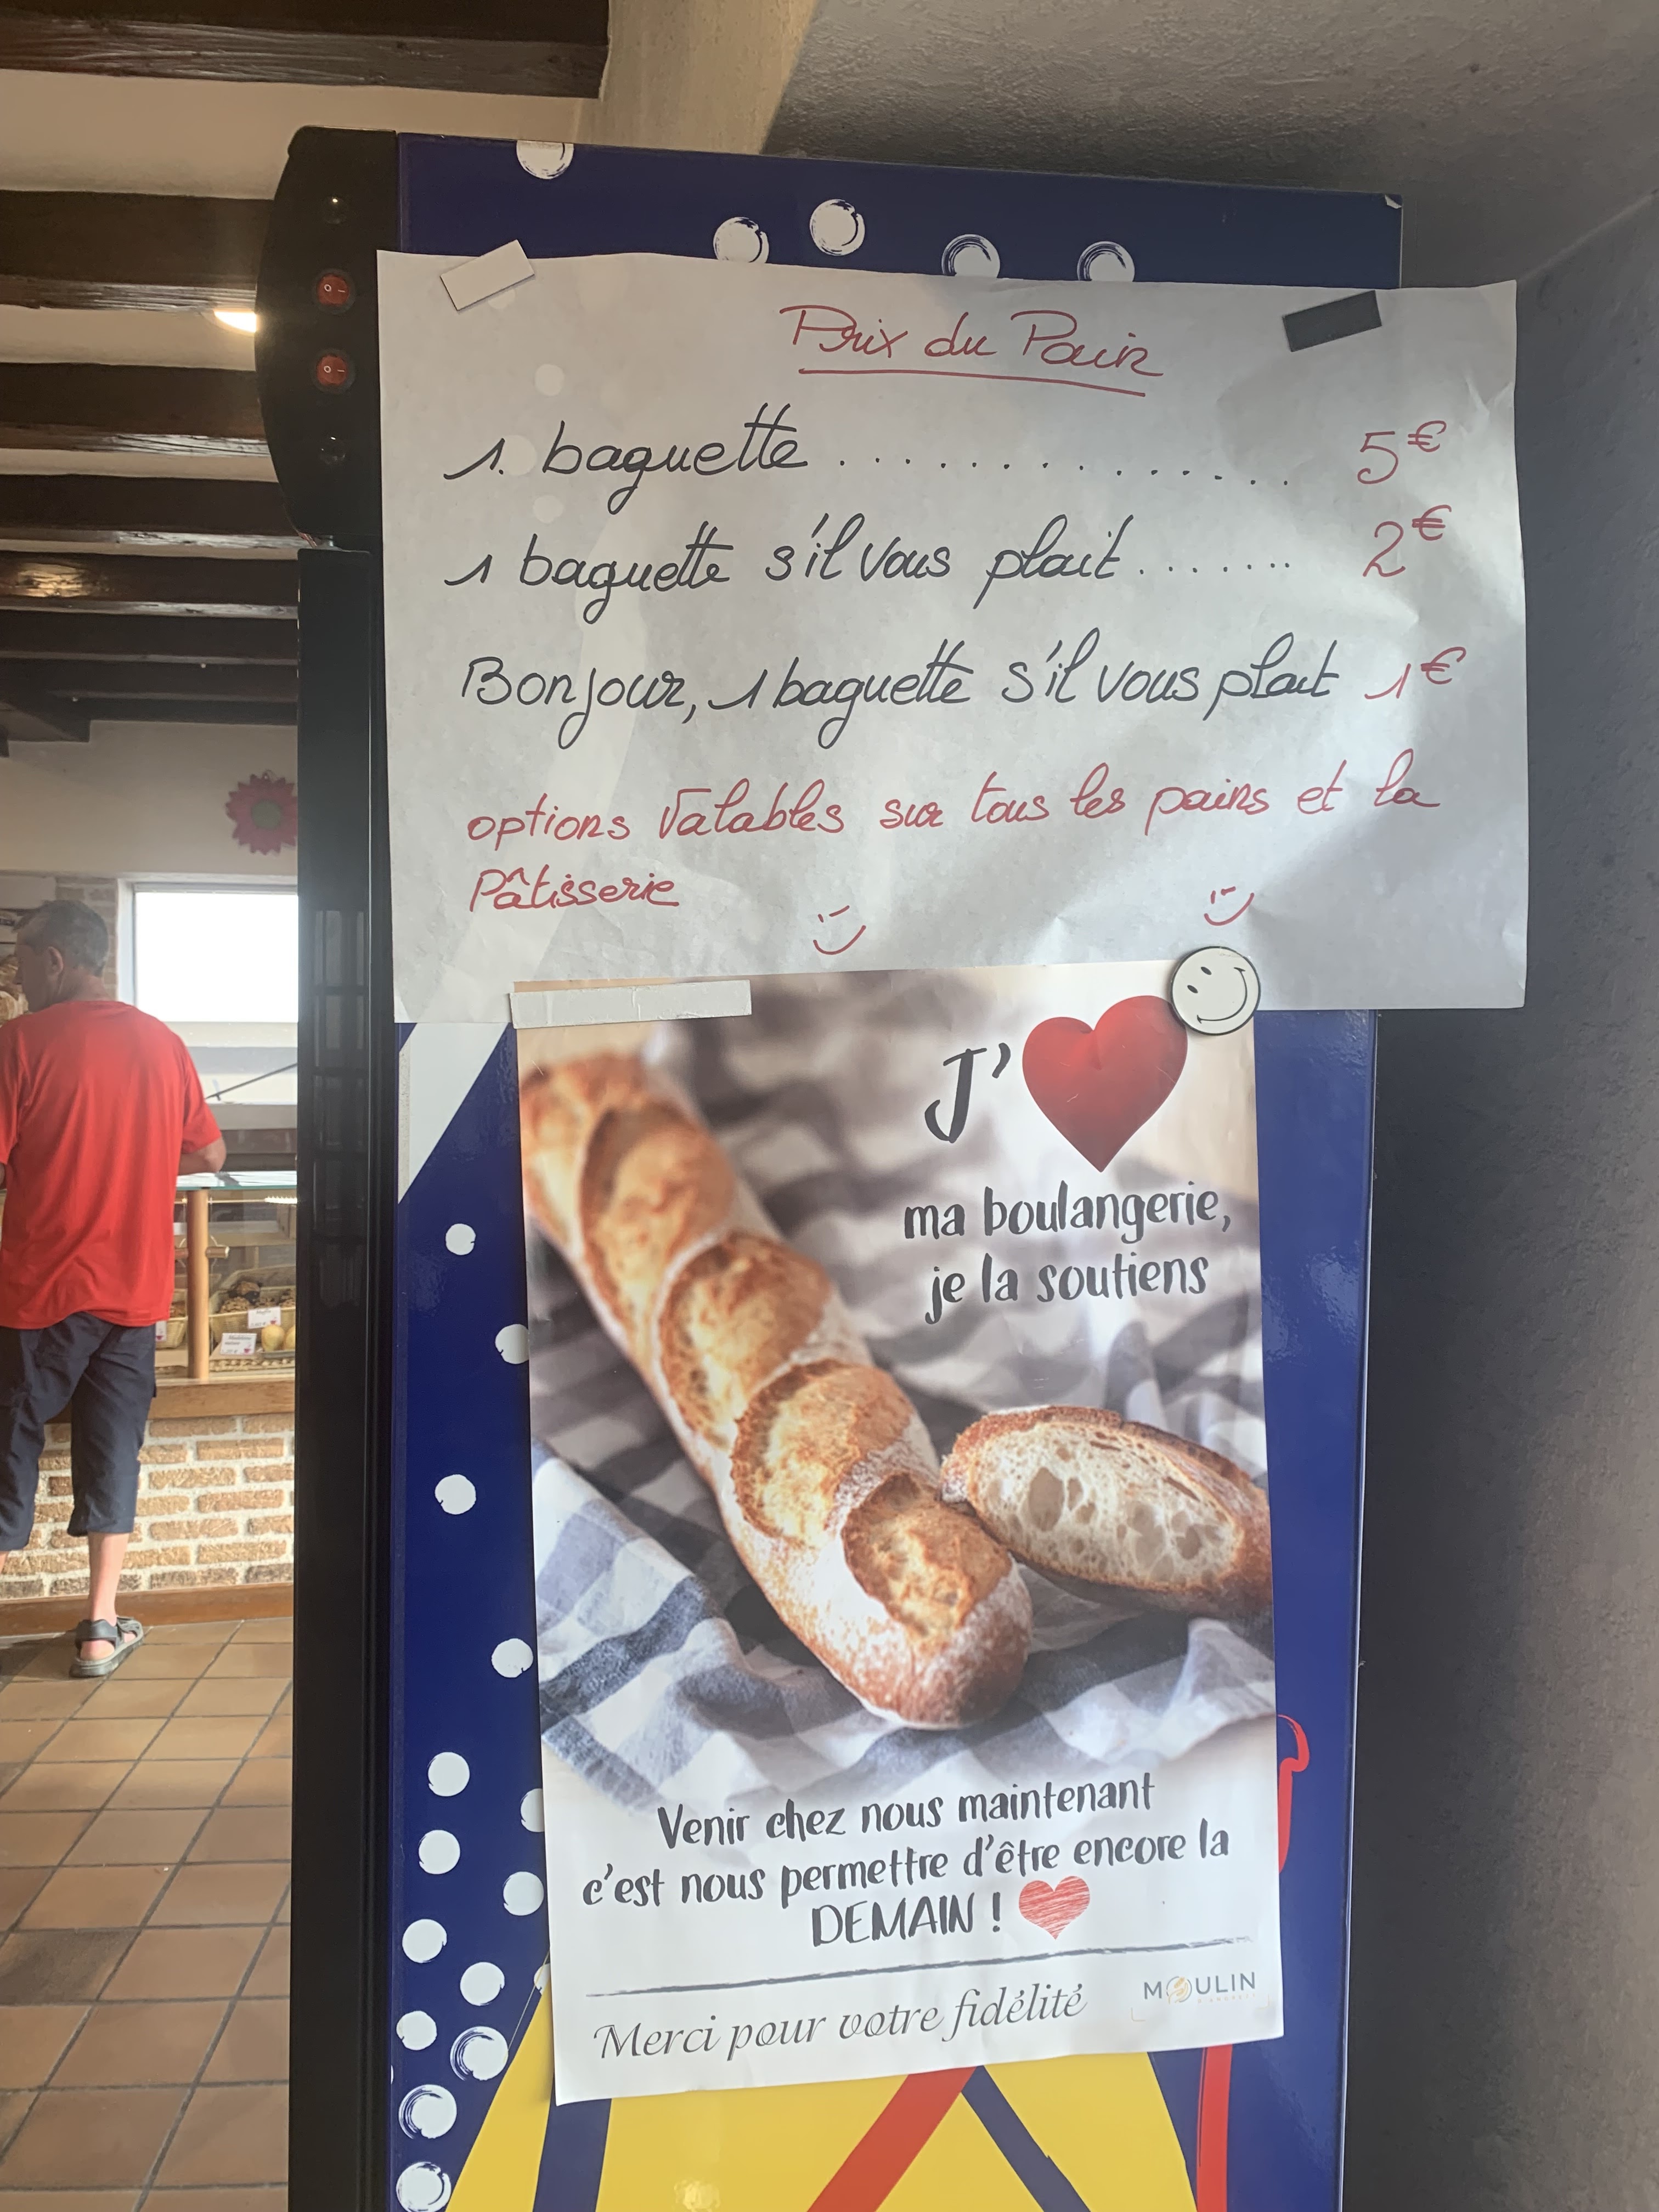 Prix du Pain
1. baguette .............. 5€
1 baguette s'il vous plait ....... 2€
Bonjour, 1 baguette s'il vous plait 1€
options valables sur tous les pains et la
Pâtisserie
J'
ma boulangerie,
je la soutiens
Venir chez nous maintenant
c'est nous permettre d'être encore la
DEMAIN !
Merci pour votre fidélité
MOULIN